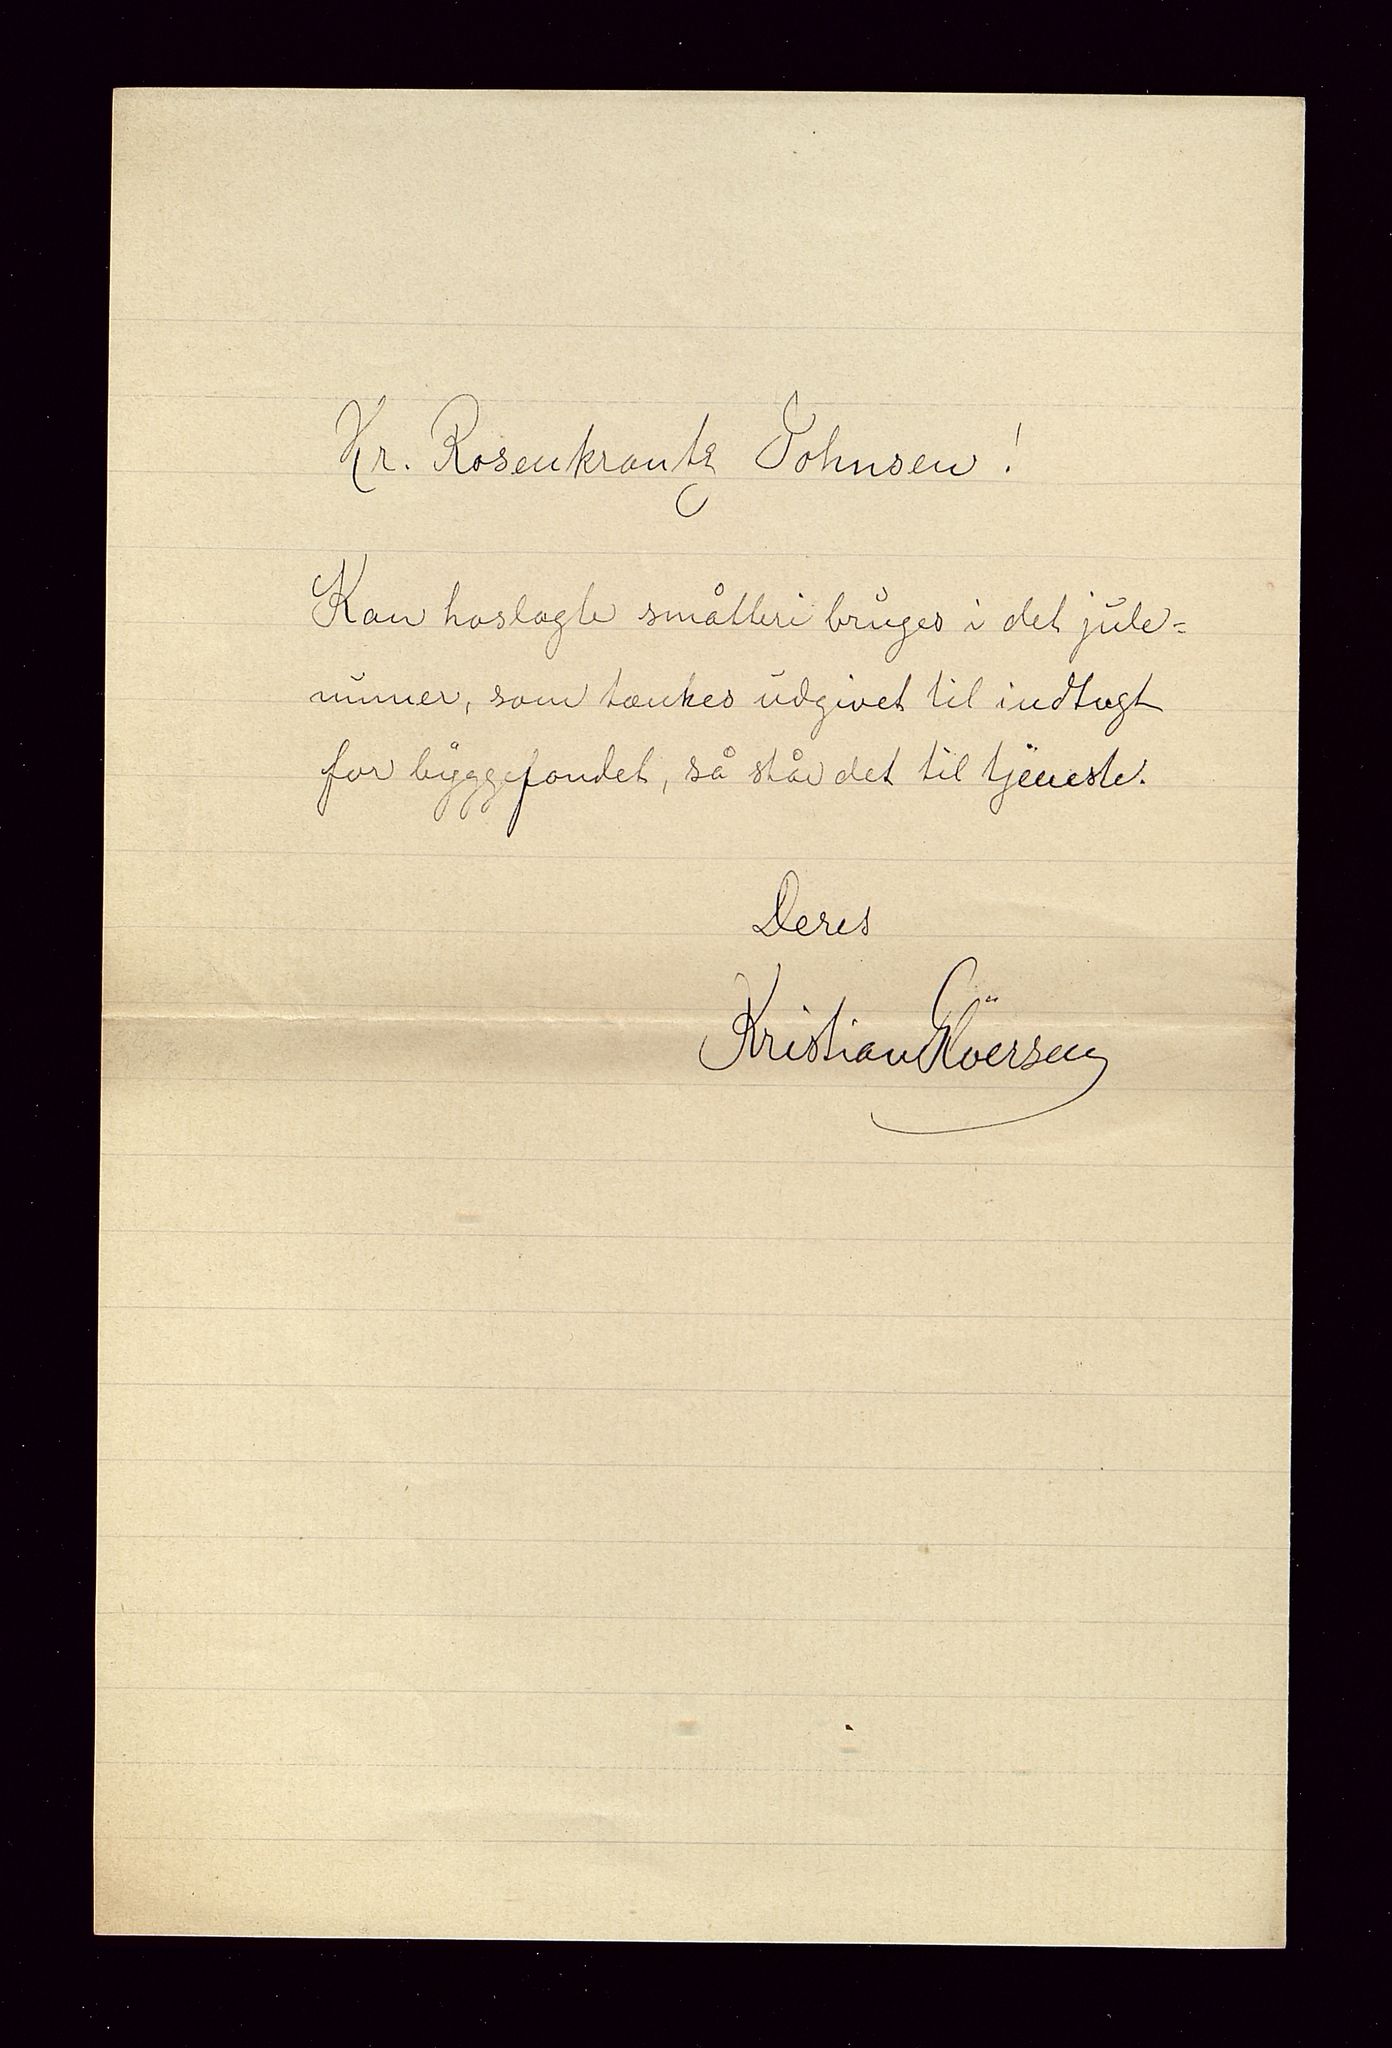 Hr. Rosenkrantz Johnsen!
Kan hoslagte småtteri bruges i det jule=
numer, som tænkes udgivet til indtægt
for byggefondet, så står det til tjeneste.
Deres
Kristian Gløersen